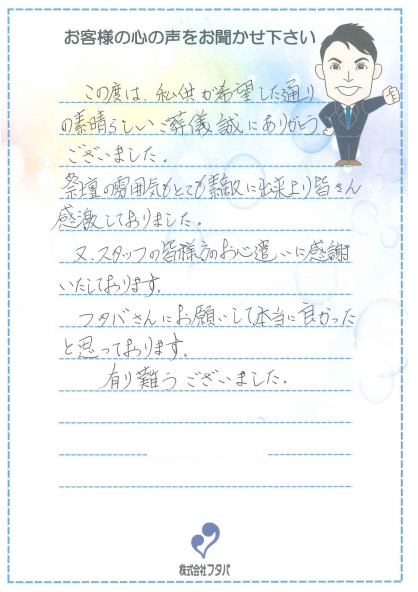 お客様の心の声をお聞かせ下さい
この度は、私供が希望した通り
の素晴らしいご葬儀誠にありがとう
ございました。
祭壇の雰囲気もとても素敵に出来上り皆さん
感激しておりました。
又、スタッフの皆様方のお心遣いに感謝
いたしております。
フタバさんにお願いして本当に良かった
と思っております。
有り難うございました。
株式会社フタバ